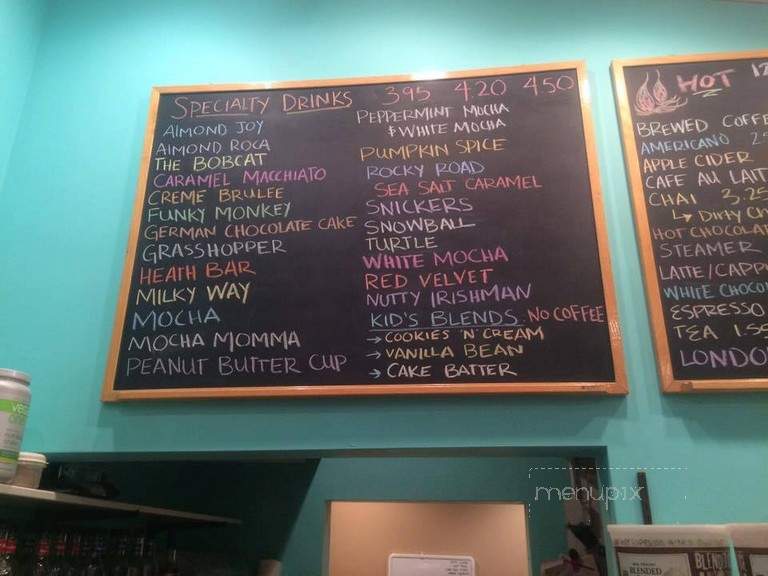 SPECIALTY DRINKS 395 420 450
ALMOND JOY
ALMOND ROCA
THE BOBCAT
CARAMEL MACCHIATO
CREME BRULEE
FUNKY MONKEY
GERMAN CHOCOLATE CAKE
GRASSHOPPER
HEATH BAR
MILKY WAY
MOCHA
MOCHA MOMMA
PEANUT BUTTER CUP
PEPPERMINT MOCHA
& WHITE MOCHA
PUMPKIN SPICE
ROCKY ROAD
SEA SALT CARAMEL
SNICKERS
SNOWBALL
TURTLE
WHITE MOCHA
RED VELVET
NUTTY IRISHMAN
KID'S BLENDS NO COFFEE
→ COOKIES 'N' CREAM
→ VANILLA BEAN
→ CAKE BATTER
HOT 12
BREWED COFFE
AMERICANO 2
APPLE CIDER
CAFE AU LAIT
CHAI 3.25
↳ DIRTY CH
HOT CHOCOLAT
STEAMER
LATTE/CAPPU
WHITE CHOCO
ESPRESSO
TEA 1.55
LONDO
menupix
BLENDED
BLEND